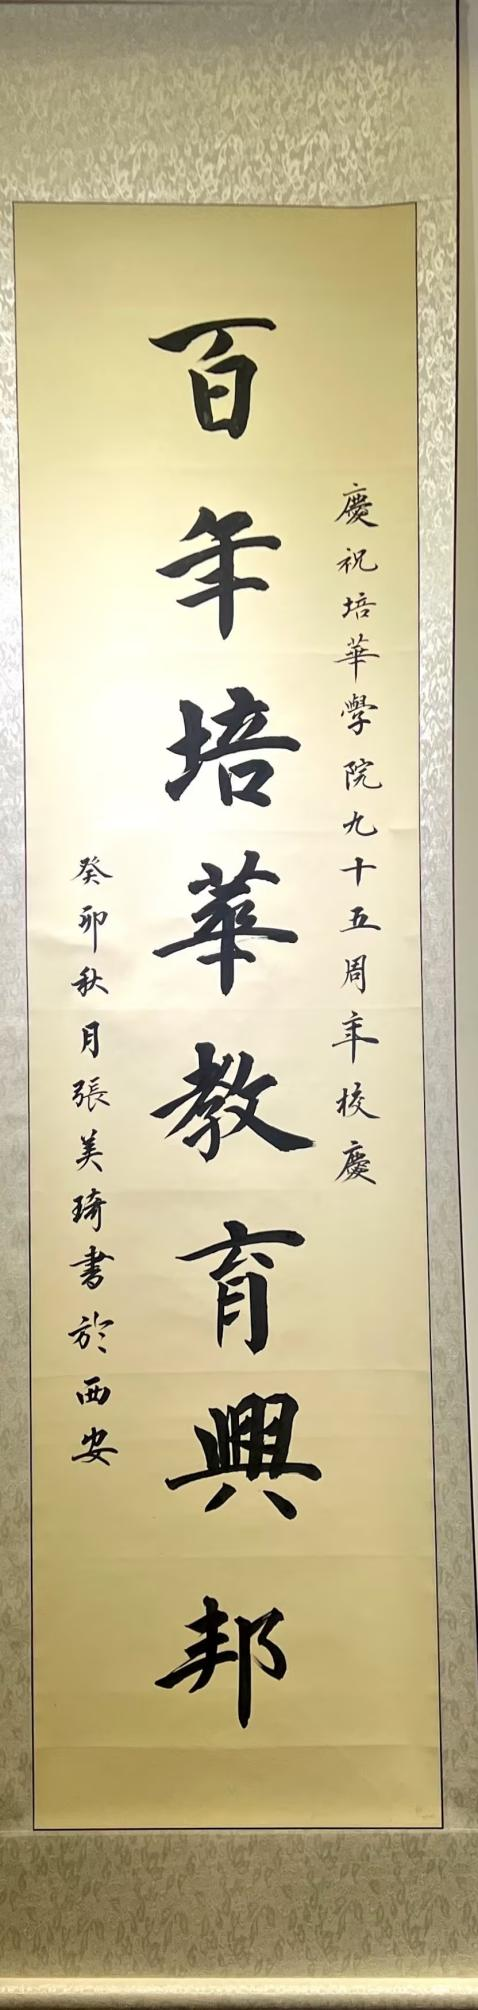 慶祝培華學院九十五周年校慶
百年培華教育興邦
癸卯秋月張美琦書於西安